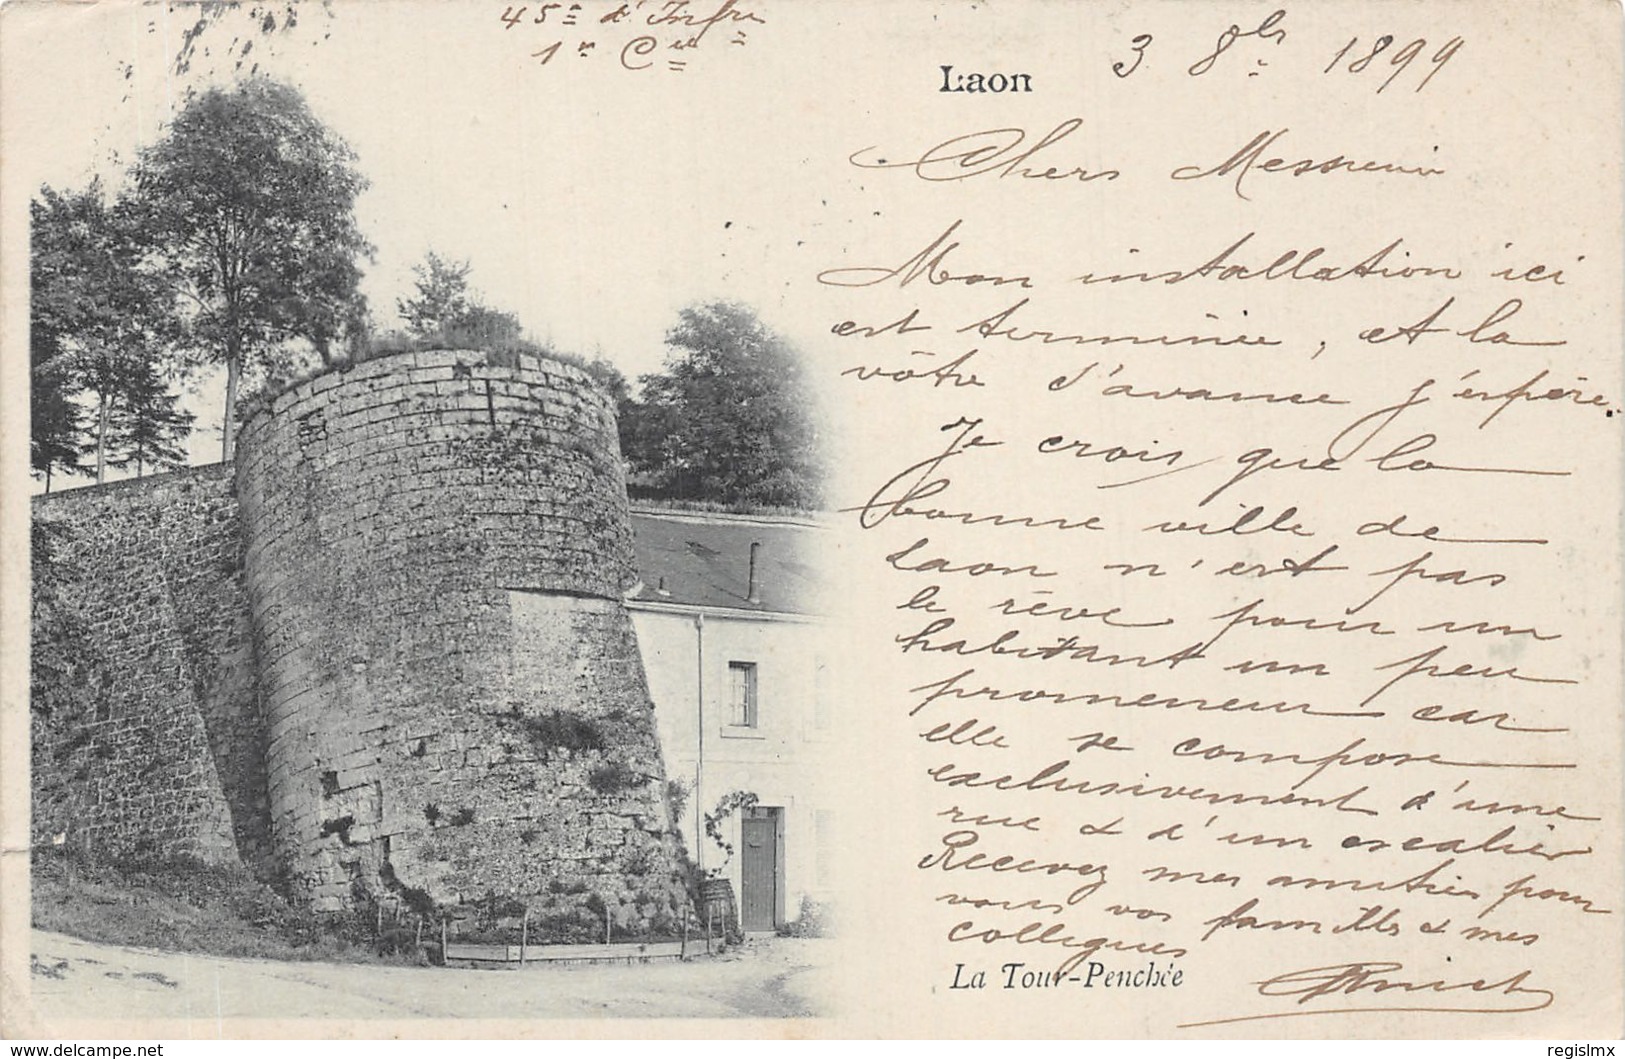 45e d'Infie
1re Cie
Laon
3 8bre 1899
Chers Messieurs
Mon installation ici
est terminée, et la
vôtre d'avance j'espère.
Je crois que la
bonne ville de
Laon n'est pas
le rêve pour un
habitant un peu
promeneur car
elle se compose
exclusivement d'une
rue & d'un escalier
Recevez mes amitiés pour
vous vos familles & mes
collegues
La Tour-Penchée
www.delcampe.net
regislmx